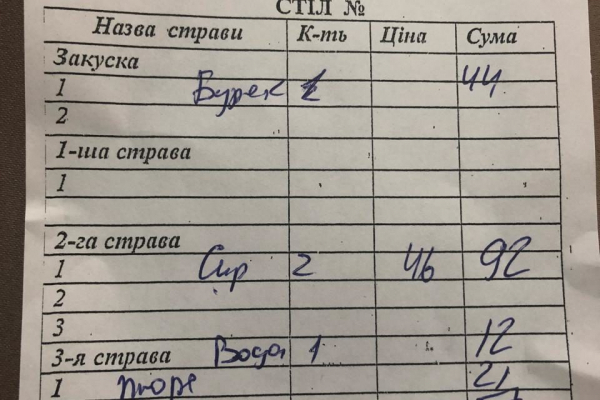 СТІЛ №
Назва страви К-ть Ціна Сума
Закуска
1 Бурек 2 44
2
1-ша страва
1
2-га страва
1 Сир 2 46 92
2
3 12
3-я страва Вода 1
1 пюре 21